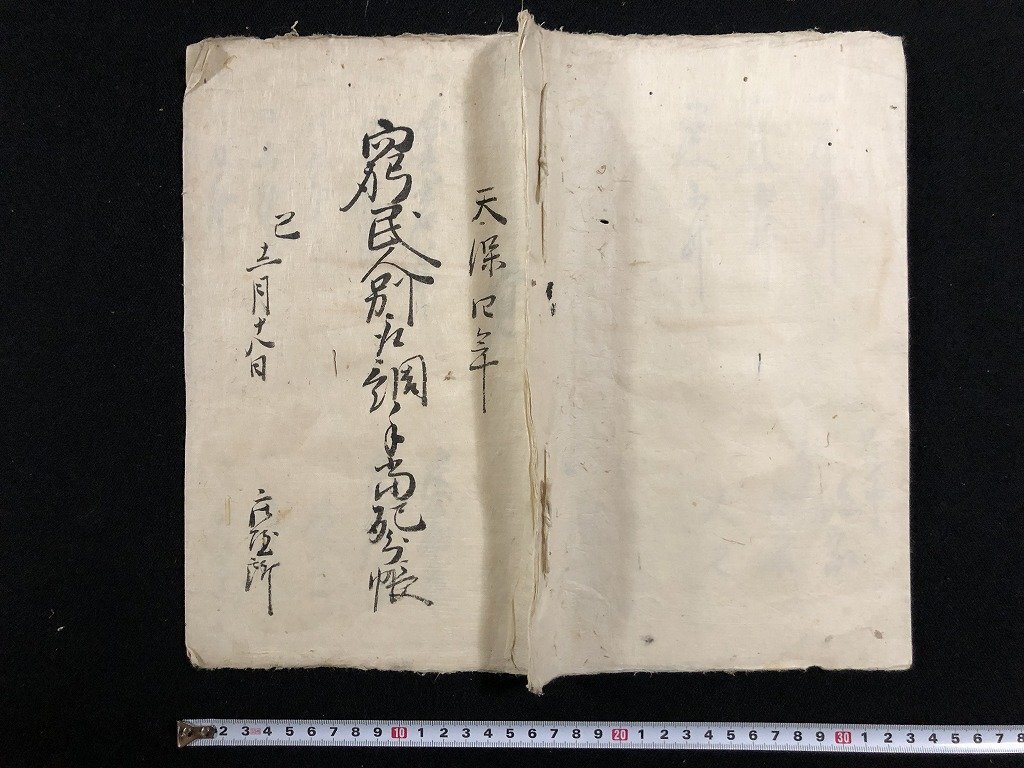 天保四年
窮民人別取調手當配分帳
巳十二月十八日
庄屋所
2 3 4 5 6 7 8 9 10 1 2 3 4 5 6 7 8 9 20 1 2 3 4 5 6 7 8 9 30 1 2 3 4 5 6 7 8